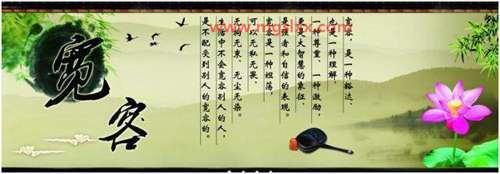 宽容
宽容，是一种豁达、
也是一种理解、
一种尊重、一种激励，
更是大智慧的象征、
强者和自信的表现。
宽容是一种坦荡，
可以无私无畏、
无拘无束、无尘无染。
生活中不会宽容别人的人，
是不配受到别人的宽容的。